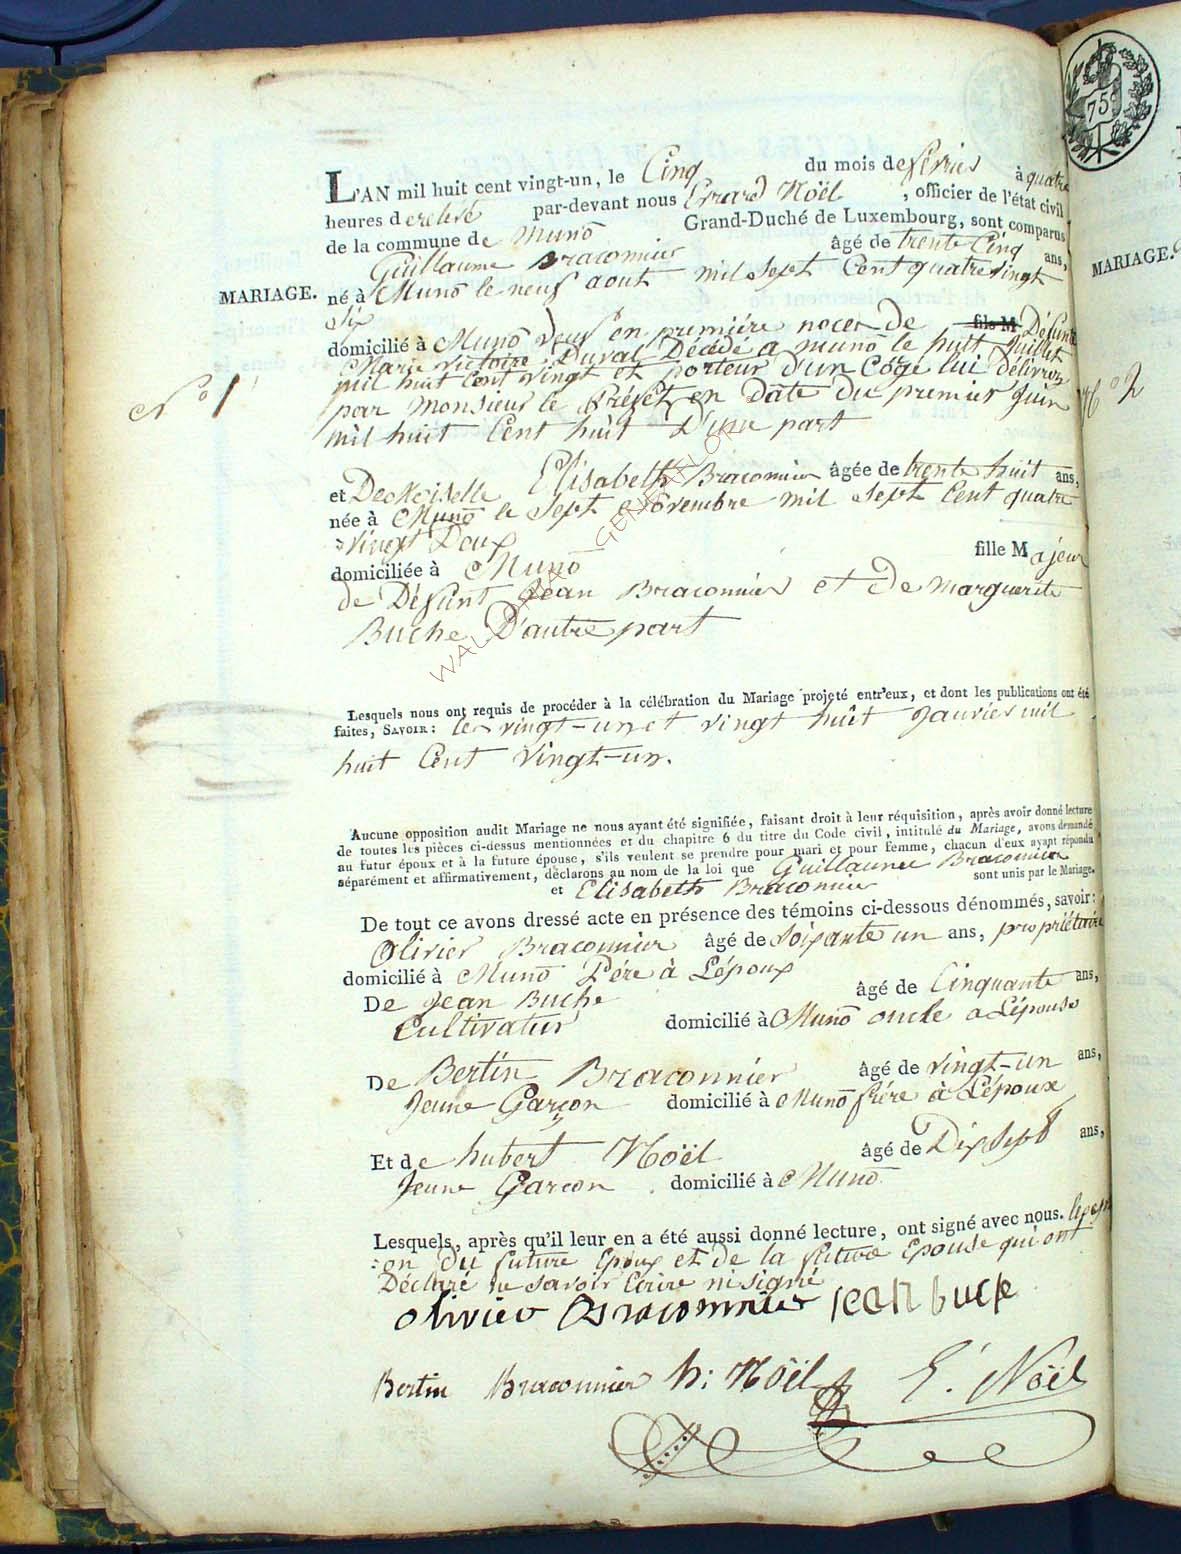 L'AN mil huit cent vingt-un, le Cinq du mois de fevrier à quatre
heures de relevé par-devant nous Erard Noël, officier de l'état civil
de la commune de Muno Grand-Duché de Luxembourg, sont comparus
Guillaume Braconnier âgé de trente Cinq ans,
MARIAGE. né à Muno le neuf aout mil sept Cent quatre vingt
six
domicilié à Muno veuf en premiére noces de fils M Défunte
Marie Victoire Duval Décédé a muno le huit Juillet
mil huit Cent vingt et porteur d'un Cogé lui délivrer
N° 1
par Monsieur le Préfet en date du premier Juin
mil huit Cent huit D'une part
et Demoiselle Elisabeth Braconnier âgée de trente huit ans,
née à Muno le sept Novembre mil sept Cent quatre
=vingt Deux
domiciliée à Muno fille Majeur
de Défunt Jean Braconnier et De marguerite
Buche D'autre part
Lesquels nous ont requis de procéder à la célébration du Mariage projeté entr'eux, et dont les publications ont été
faites, SAVOIR: les vingt-un et vingt huit Janvier mil
huit Cent vingt-un.
Aucune opposition audit Mariage ne nous ayant été signifiée, faisant droit à leur réquisition, après avoir donné lecture
de toutes les pièces ci-dessus mentionnées et du chapitre 6 du titre du Code civil, intitulé du Mariage, avons demandé
au futur époux et à la future épouse, s'ils veulent se prendre pour mari et pour femme, chacun d'eux ayant répondu
séparément et affirmativement, déclarons au nom de la loi que Guillaume Braconnier
et Elisabeth Braconnier sont unis par le Mariage.
De tout ce avons dressé acte en présence des témoins ci-dessous dénommés, savoir:
Olivier Braconnier âgé de soixante un ans, propriétaire
domicilié à Muno Pére à L'époux
De Jean Buche âgé de Cinquante ans,
Cultivatur domicilié à Muno oncle a L'épouse
De Bertin Braconnier âgé de vingt-un ans,
Jeune Garçon domicilié à Muno frére à L'époux
Et de hubert Noël âgé de Dix Sept ans,
Jeune Garcon domicilié à Muno
Lesquels, après qu'il leur en a été aussi donné lecture, ont signé avec nous.
:on du future Epoux et de la future Epouse qui ont
Déclaré ne savoir Ecrire ni signé
olivier Braconnier jean buche
Bertin Braconnier h: Noël E. Noël
WALLONIA GENEALOGIE
75
MARIAGE.
N° 2